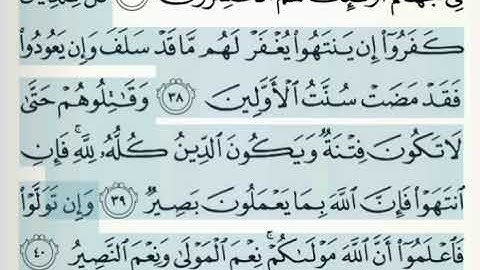 فِي جَهَنَّمَ أُوْلَٰٓئِكَ هُمُ ٱلْخَٰسِرُونَ ۝ قُل لِّلَّذِينَ
كَفَرُوٓا۟ إِن يَنتَهُوا۟ يُغْفَرْ لَهُم مَّا قَدْ سَلَفَ وَإِن يَعُودُوا۟
فَقَدْ مَضَتْ سُنَّتُ ٱلْأَوَّلِينَ ٣٨ وَقَٰتِلُوهُمْ حَتَّىٰ
لَا تَكُونَ فِتْنَةٌ وَيَكُونَ ٱلدِّينُ كُلُّهُۥ لِلَّهِ ۚ فَإِنِ
ٱنتَهَوْا۟ فَإِنَّ ٱللَّهَ بِمَا يَعْمَلُونَ بَصِيرٌ ٣٩ وَإِن تَوَلَّوْا۟
فَٱعْلَمُوٓا۟ أَنَّ ٱللَّهَ مَوْلَىٰكُمْ ۚ نِعْمَ ٱلْمَوْلَىٰ وَنِعْمَ ٱلنَّصِيرُ ٤٠